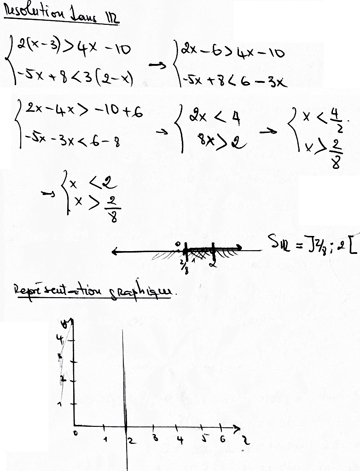 Resolution dans IR
{ 2(x-3) > 4x - 10 → { 2x - 6 > 4x - 10
{ -5x + 8 < 3(2-x) → { -5x + 8 < 6 - 3x
{ 2x - 4x > -10 + 6 → { 2x < 4 → { x < 4/2
{ -5x - 3x < 6 - 8 → { 8x > 2 → { x > 2/8
→ { x < 2
{ x > 2/8
0 2/8 1 2
SIR = ]2/8 ; 2[
Représentation graphique.
y
4
3
2
1
0 1 2 3 4 5 6 x